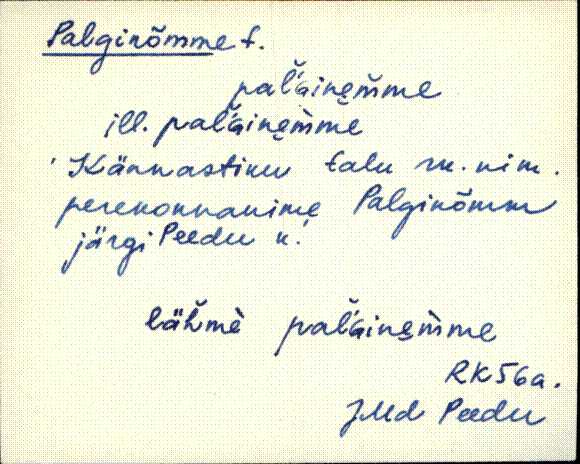 Palginõmme t.
pal̆'G̀ine̮m̆me
ill. pal̆'G̀ine̮m̀me
'Kännastiku talu rr. nim.
perekonnanime Palginõmm
järgi Peedu k.'
läh̆mè pal̆'G̀ine̮m̀me
RK 56a.
J.Md Peedu